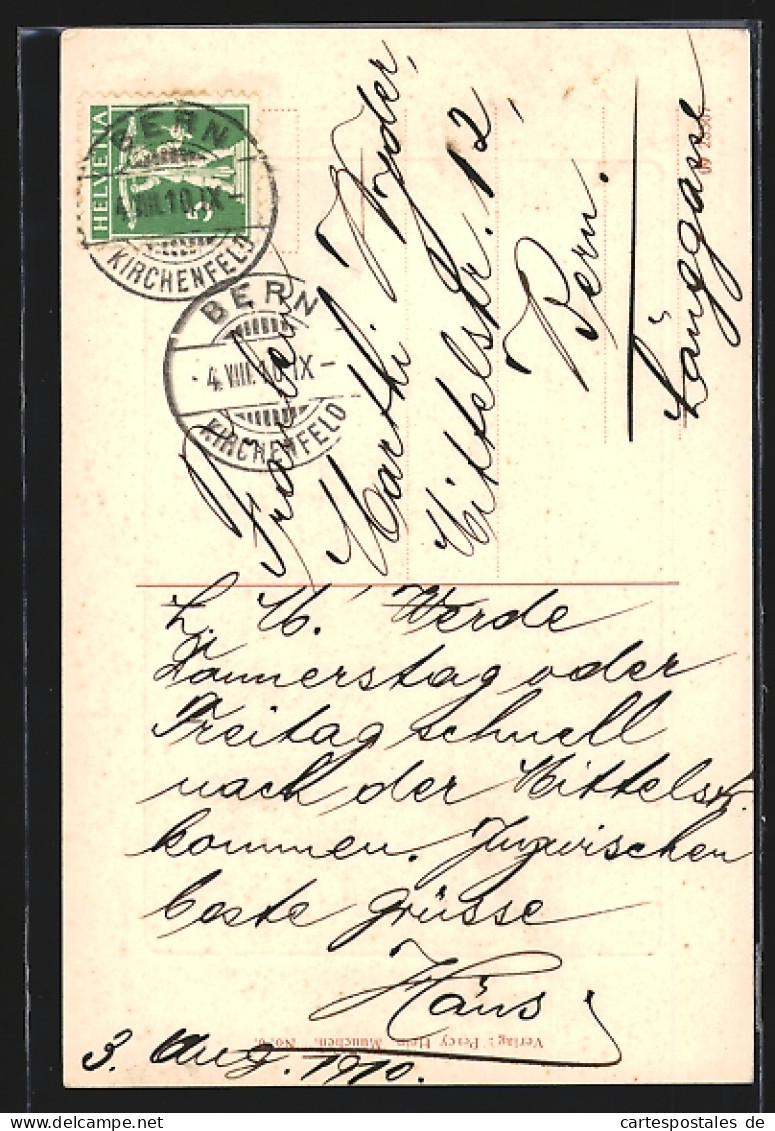 HELVETIA
5
BERN
4.VIII.10.IX-
KIRCHENFELD
BERN
-4.VIII.10.IX-
KIRCHENFELD
Fräulein
Marthi
Mittelstr. 12,
Bern.
Länggasse
L. M.! Werde
Donnerstag oder
Freitag schnell
nach der Mittelstr.
kommen. Inzwischen
beste grüsse
Hans
3. Aug. 1910.
Verlag: Percy Hein, München.
cartespostales.de